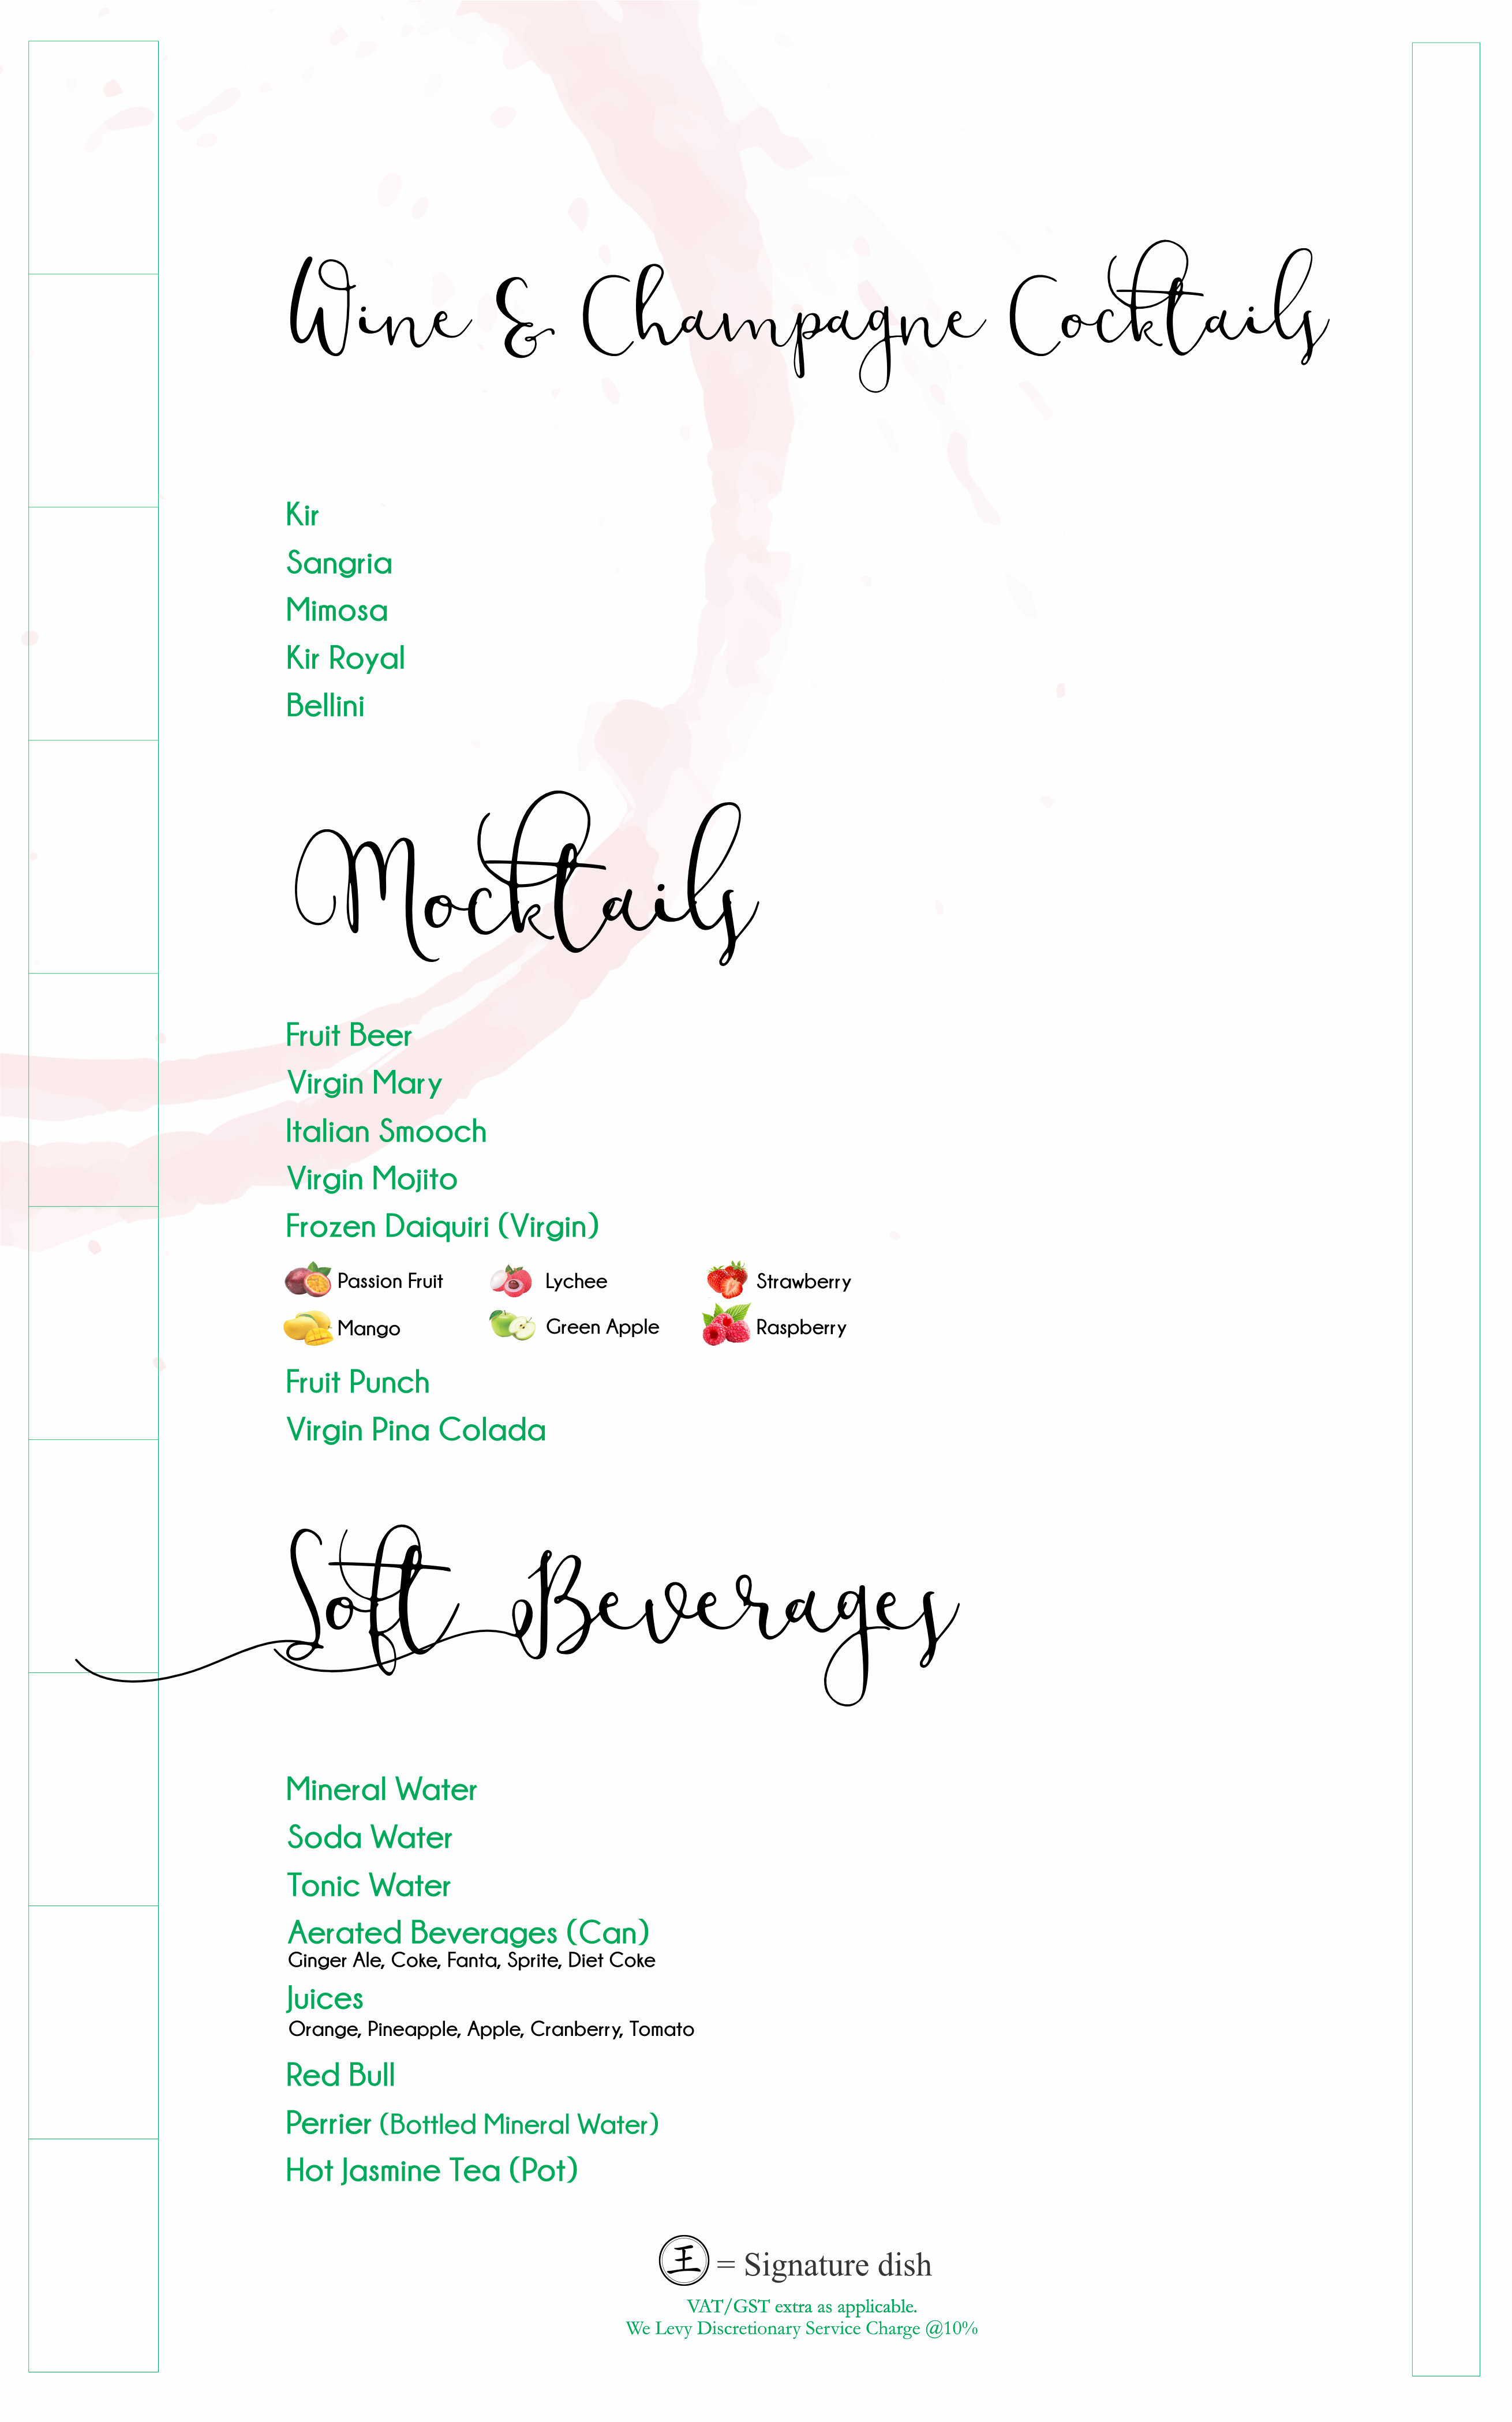 Wine & Champagne Cocktails
Kir
Sangria
Mimosa
Kir Royal
Bellini
Mocktails
Fruit Beer
Virgin Mary
Italian Smooch
Virgin Mojito
Frozen Daiquiri (Virgin)
Passion Fruit Lychee Strawberry
Mango Green Apple Raspberry
Fruit Punch
Virgin Pina Colada
Soft Beverages
Mineral Water
Soda Water
Tonic Water
Aerated Beverages (Can)
Ginger Ale, Coke, Fanta, Sprite, Diet Coke
Juices
Orange, Pineapple, Apple, Cranberry, Tomato
Red Bull
Perrier (Bottled Mineral Water)
Hot Jasmine Tea (Pot)
王 = Signature dish
VAT/GST extra as applicable.
We Levy Discretionary Service Charge @10%